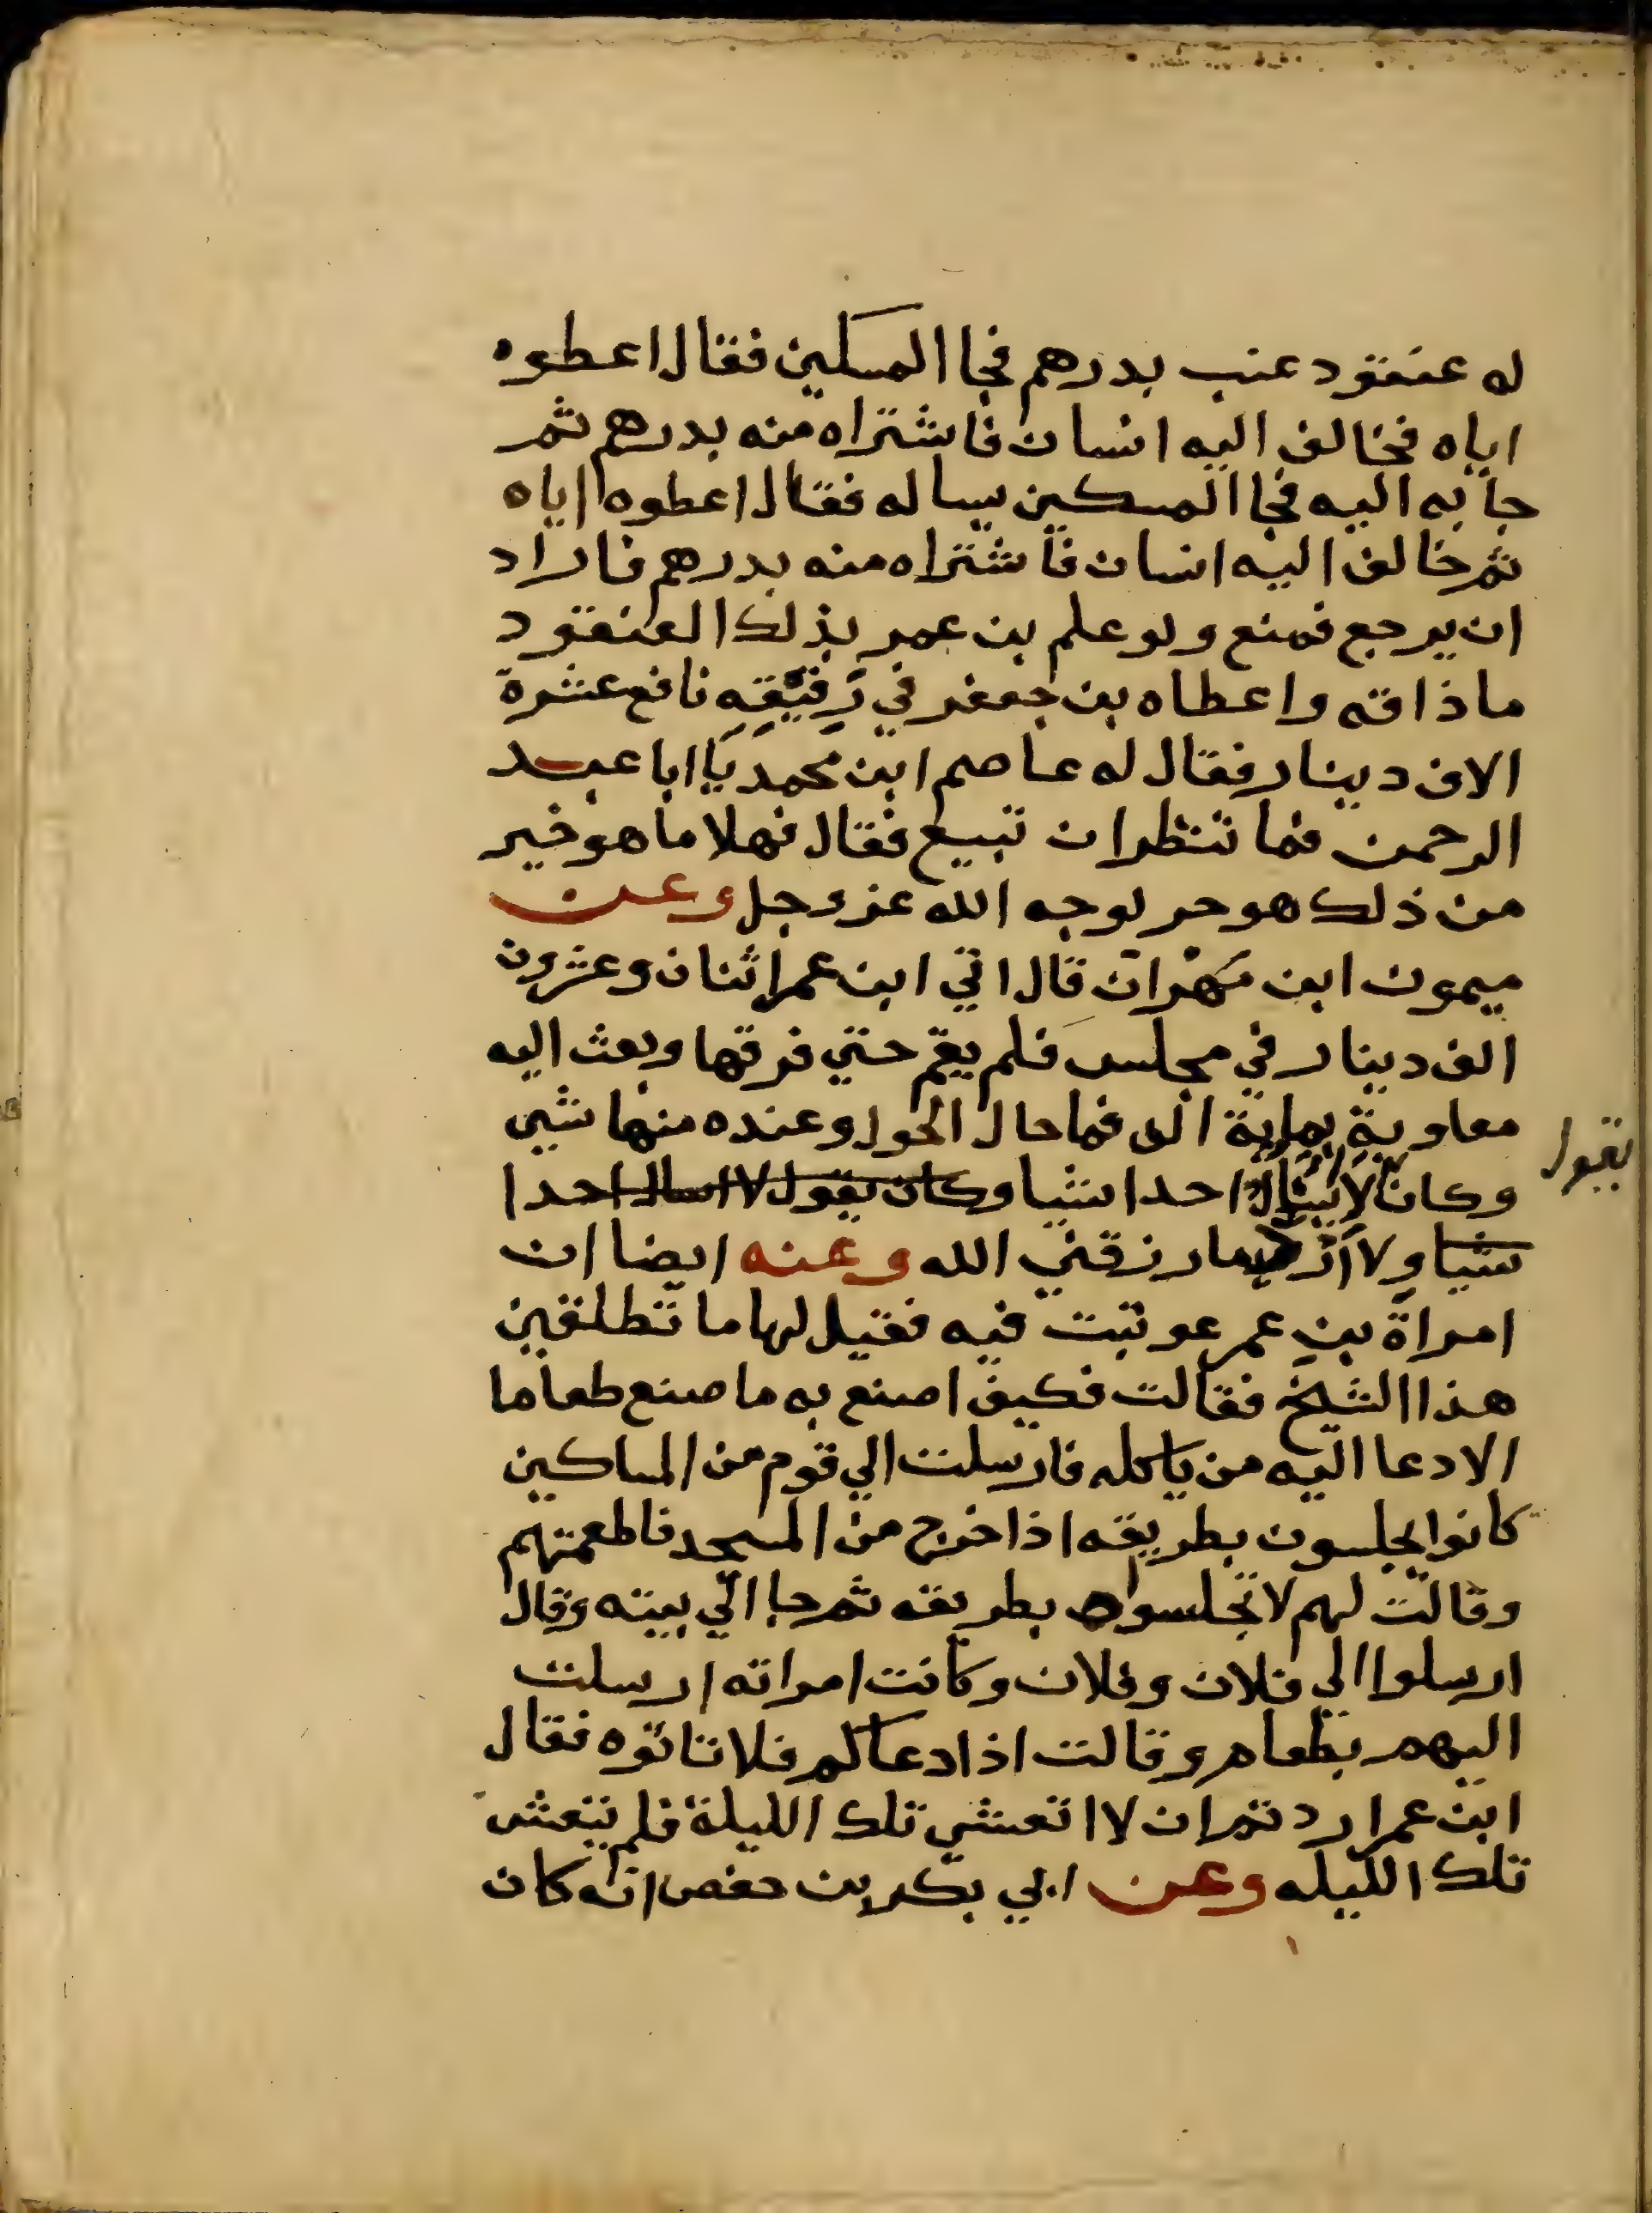 له عنقود عنب بدرهم فجا المسكين فقال اعطوه
اياه فخالف اليه انسان فاشتراه منه بدرهم ثم
جا به اليه فجا المسكين يساله فقال اعطوه اياه
ثم خالف اليه انسان فاشتراه منه بدرهم فاراد
ان يرجع فمنع ولو علم بن عمر بذلك العنقود
ماذاقه واعطاه بن جعفر في رقيقه نافع عشرة
الاف دينار فقال له عاصم ابن محمد يا ابا عبد
الرحمن فما تنتظر ان تبيع فقال فهلا ما هو خير
من ذلك هو حر لوجه الله عز وجل وعن
ميمون ابن مهران قال اتي ابن عمر اثنان وعشرون
الف دينار في مجلس فلم يقم حتي فرقها وبعث اليه
معاوية بماية الف فما حال الحول وعنده منها شي
يقول
وكان لا اسال احدا شيا وكان يقول لا اسال احدا
شيا ولا ارد ما رزقني الله وعنه ايضا ان
امراة بن عمر عوتبت فيه فقيل لها ما تطلقين
هذا الشيخ فقالت فكيف اصنع به ما صنع طعاما
الا دعا اليه من ياكله فارسلت الي قوم من المساكين
كانوا يجلسون بطريقه اذا خرج من المسجد فاطعمتهم
وقالت لهم لا تجلسوا بطريقه ثم جا الي بيته وقال
ارسلوا الي فلان وفلان وكانت امراته ارسلت
اليهم بطعام وقالت اذا دعاكم فلا تاتوه فقال
ابن عمر اردتم ان لا اتعشي تلك الليلة فلم يتعش
تلك الليله وعن ابي بكر بن حفص انه كان